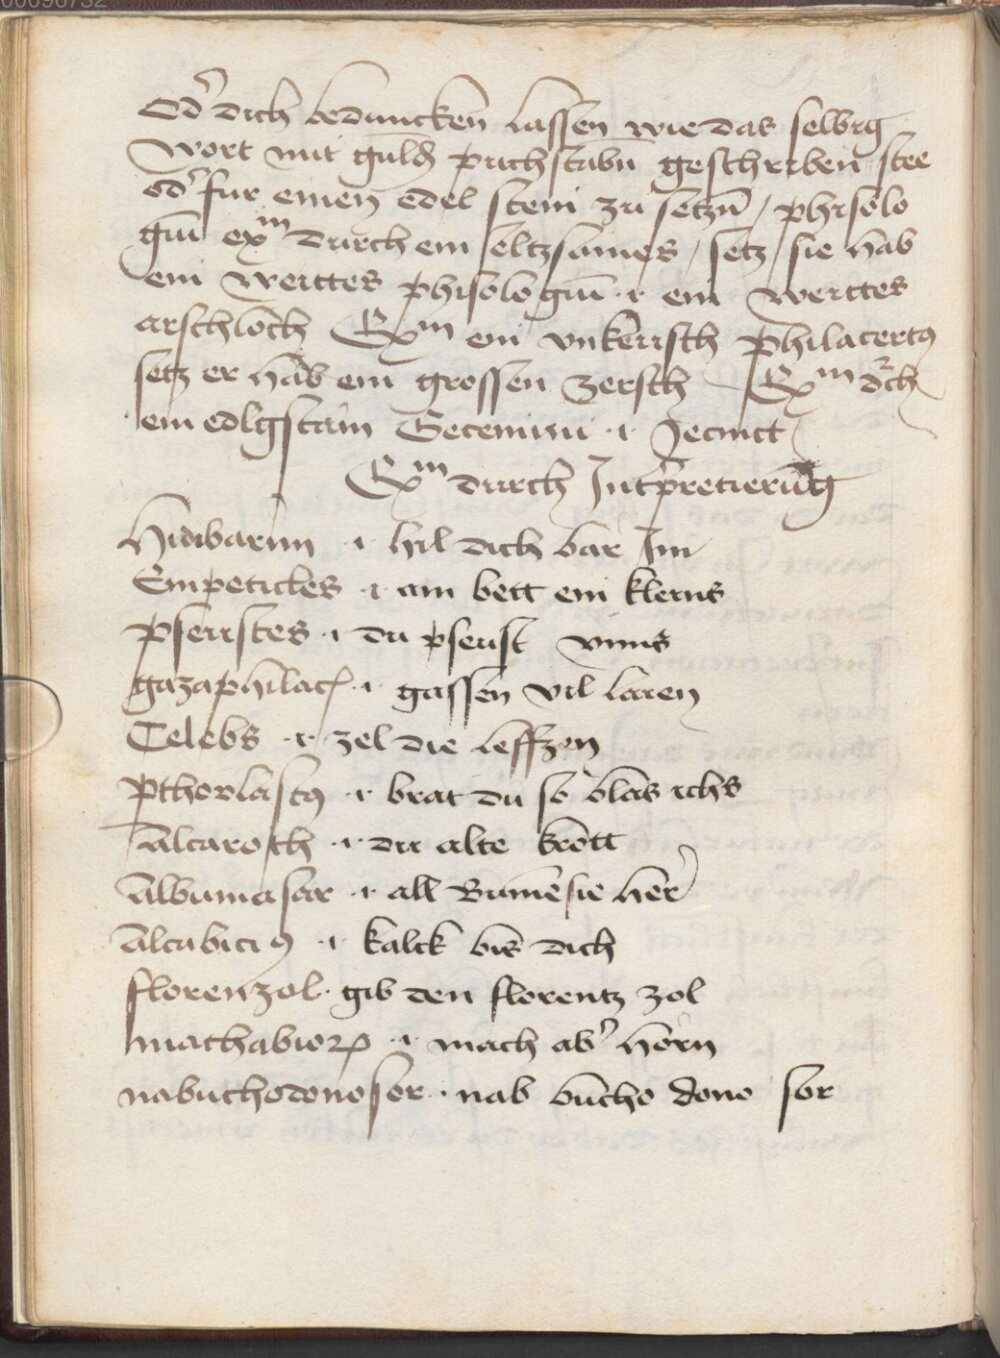 00096732
Od' dich beduncken lassen wie das selbig
wort mit guld puchstabn̄ geschriben stee
od' fur einen edel stein zu setzn̄ / phisolo
gūi exm durch ein seltzsames / setz / sie hab
ein werttes phisologūi ·i· ein werttes
arschloch Exm ein vnkeusch philateri9
setz er hab ein grossen zersch Exm durch
ein edlgstain Geceminu ·i· Jecinct
Exm durch Intpretierūg
Hidibarim ·i· hil dich bar Im
Empeticles ·i· am bett ein kleins
pseustes ·i· du pseust vnns
gazaphilac ·i· gassen vil laren
Celebs ·i· zel die leffzen
pthorlasc9 ·i· brat du so blas ichs
Alcaroth ·i· du alte krott
Albumasar ·i· all Bumē sie her
Alcabici9 ·i· kalck bis dich
florenzol · gib den florentz zol
machabior ·i· mach ab' horn
nabuchodonosor · nab būcho dono sor